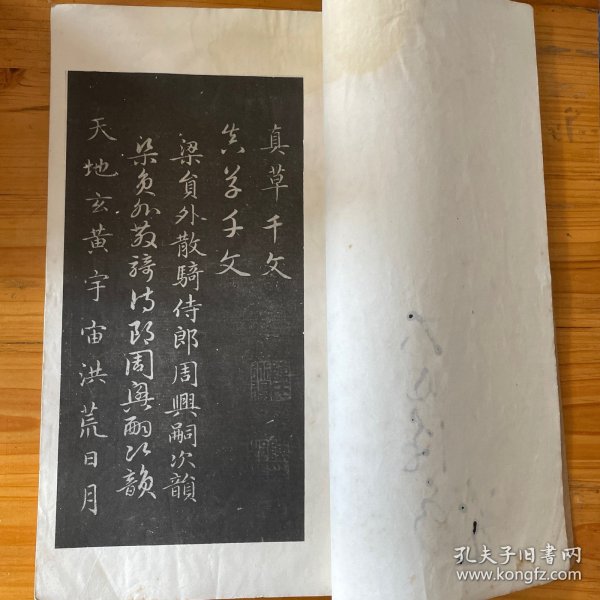 真草千文
真草千文
梁貟外散騎侍郎周興嗣次韻
梁貟外散騎侍郎周興嗣次韻
天地玄黃宇宙洪荒日月
孔夫子旧书网
www.kongfz.com